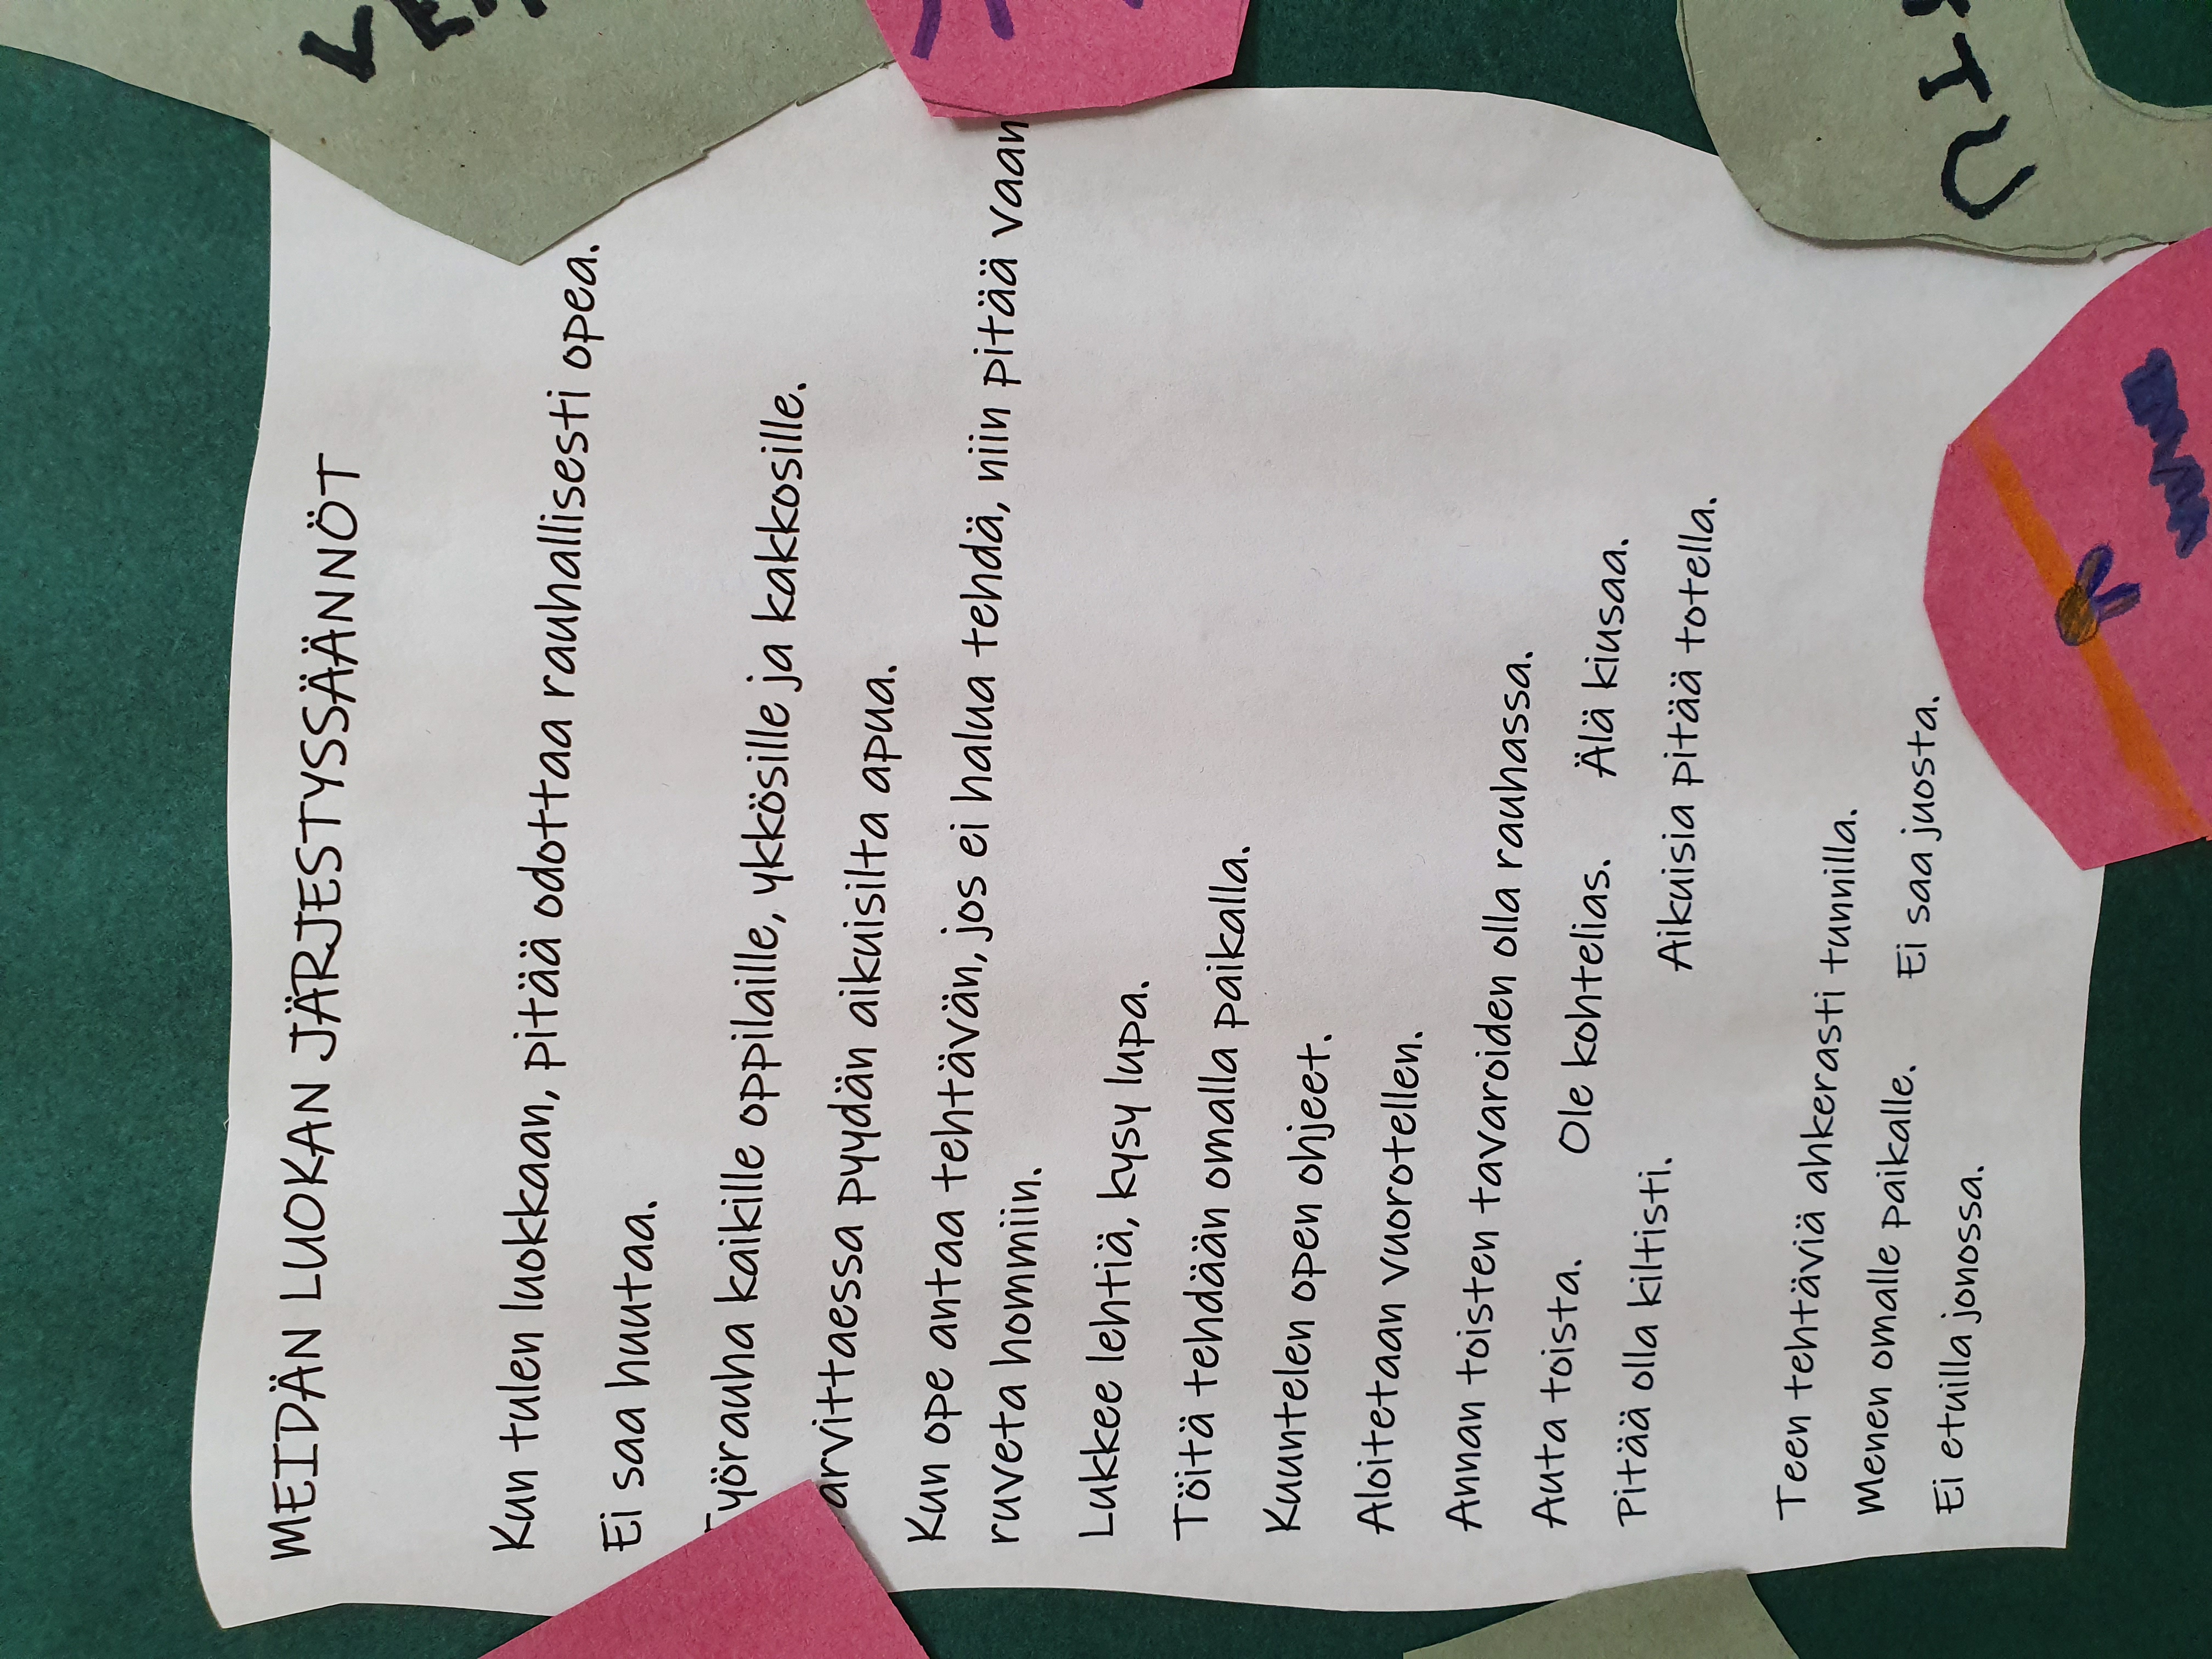 MEIDÄN LUOKAN JÄRJESTYSSÄÄNNÖT
Kun tulen luokkaan, pitää odottaa rauhallisesti opea.
Ei saa huutaa.
Työrauha kaikille oppilaille, ykkösille ja kakkosille.
arvittaessa pyydän aikuisilta apua.
Kun ope antaa tehtävän, jos ei halua tehdä, niin pitää vaan
ruveta hommiin.
Lukkee lehtiä, kysy lupa.
Töitä tehdään omalla paikalla.
Kuuntelen open ohjeet.
Aloitetaan vuorotellen.
Annan toisten tavaroiden olla rauhassa.
Auta toista. Ole kohtelias. Älä kiusaa.
Pitää olla kiltisti. Aikuisia pitää totella.
Teen tehtäviä ahkerasti tunnilla.
Menen omalle paikalle. Ei saa juosta.
Ei etuilla jonossa.